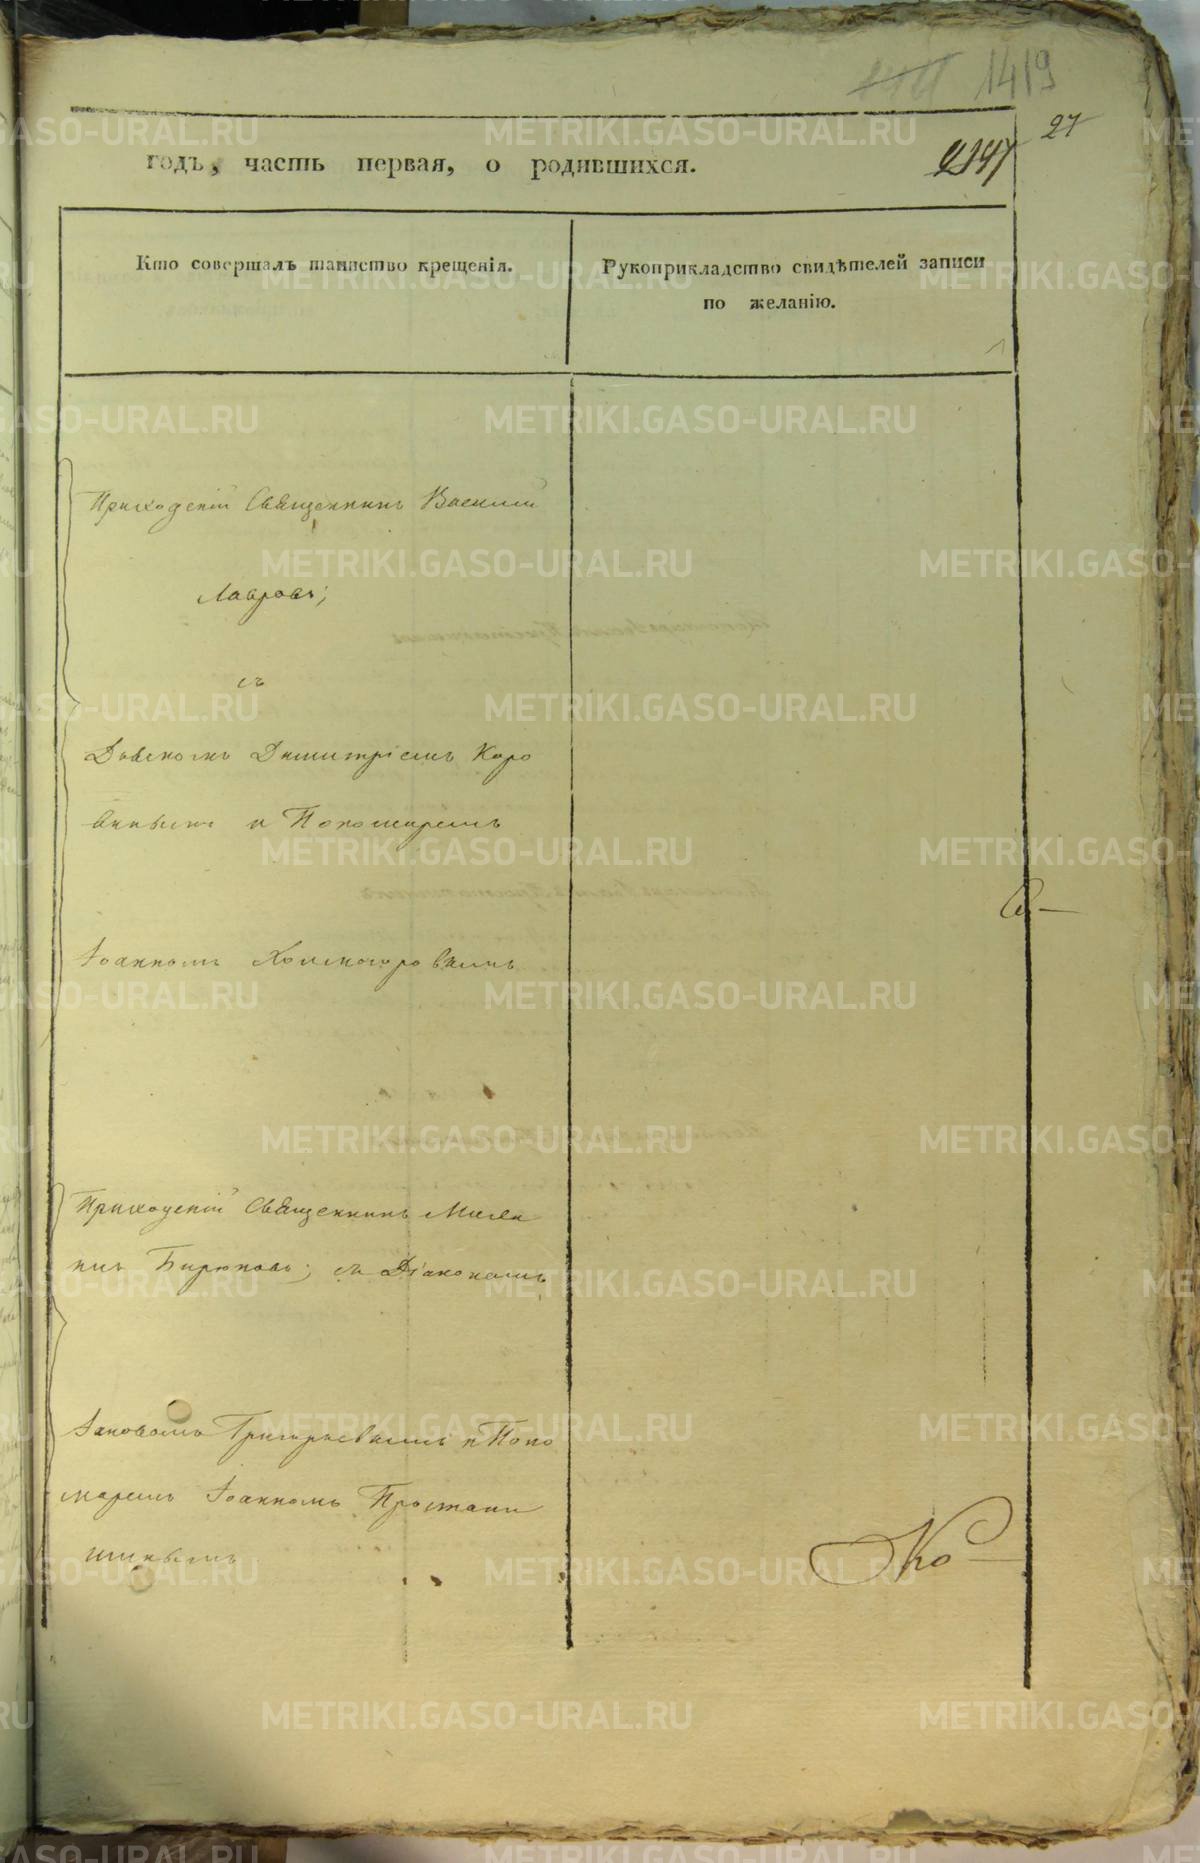 1419
27
годъ, часть первая, о родившихся.
Кто совершалъ таинство крещенія.
Рукоприкладство свидѣтелей записи
по желанію.
Приходскій Священникъ Василій
Лавровъ;
съ
Діакономъ Димитріемъ Коро
винымъ и Пономаремъ
Іоанномъ Холмогоровымъ
Приходскій Священникъ Михаи
лъ Бирюковъ; съ Діакономъ
Іаковомъ Григорьевымъ и Поно
маремъ Іоанномъ Простани
шнымъ
Ко
METRIKI.GASO-URAL.RU